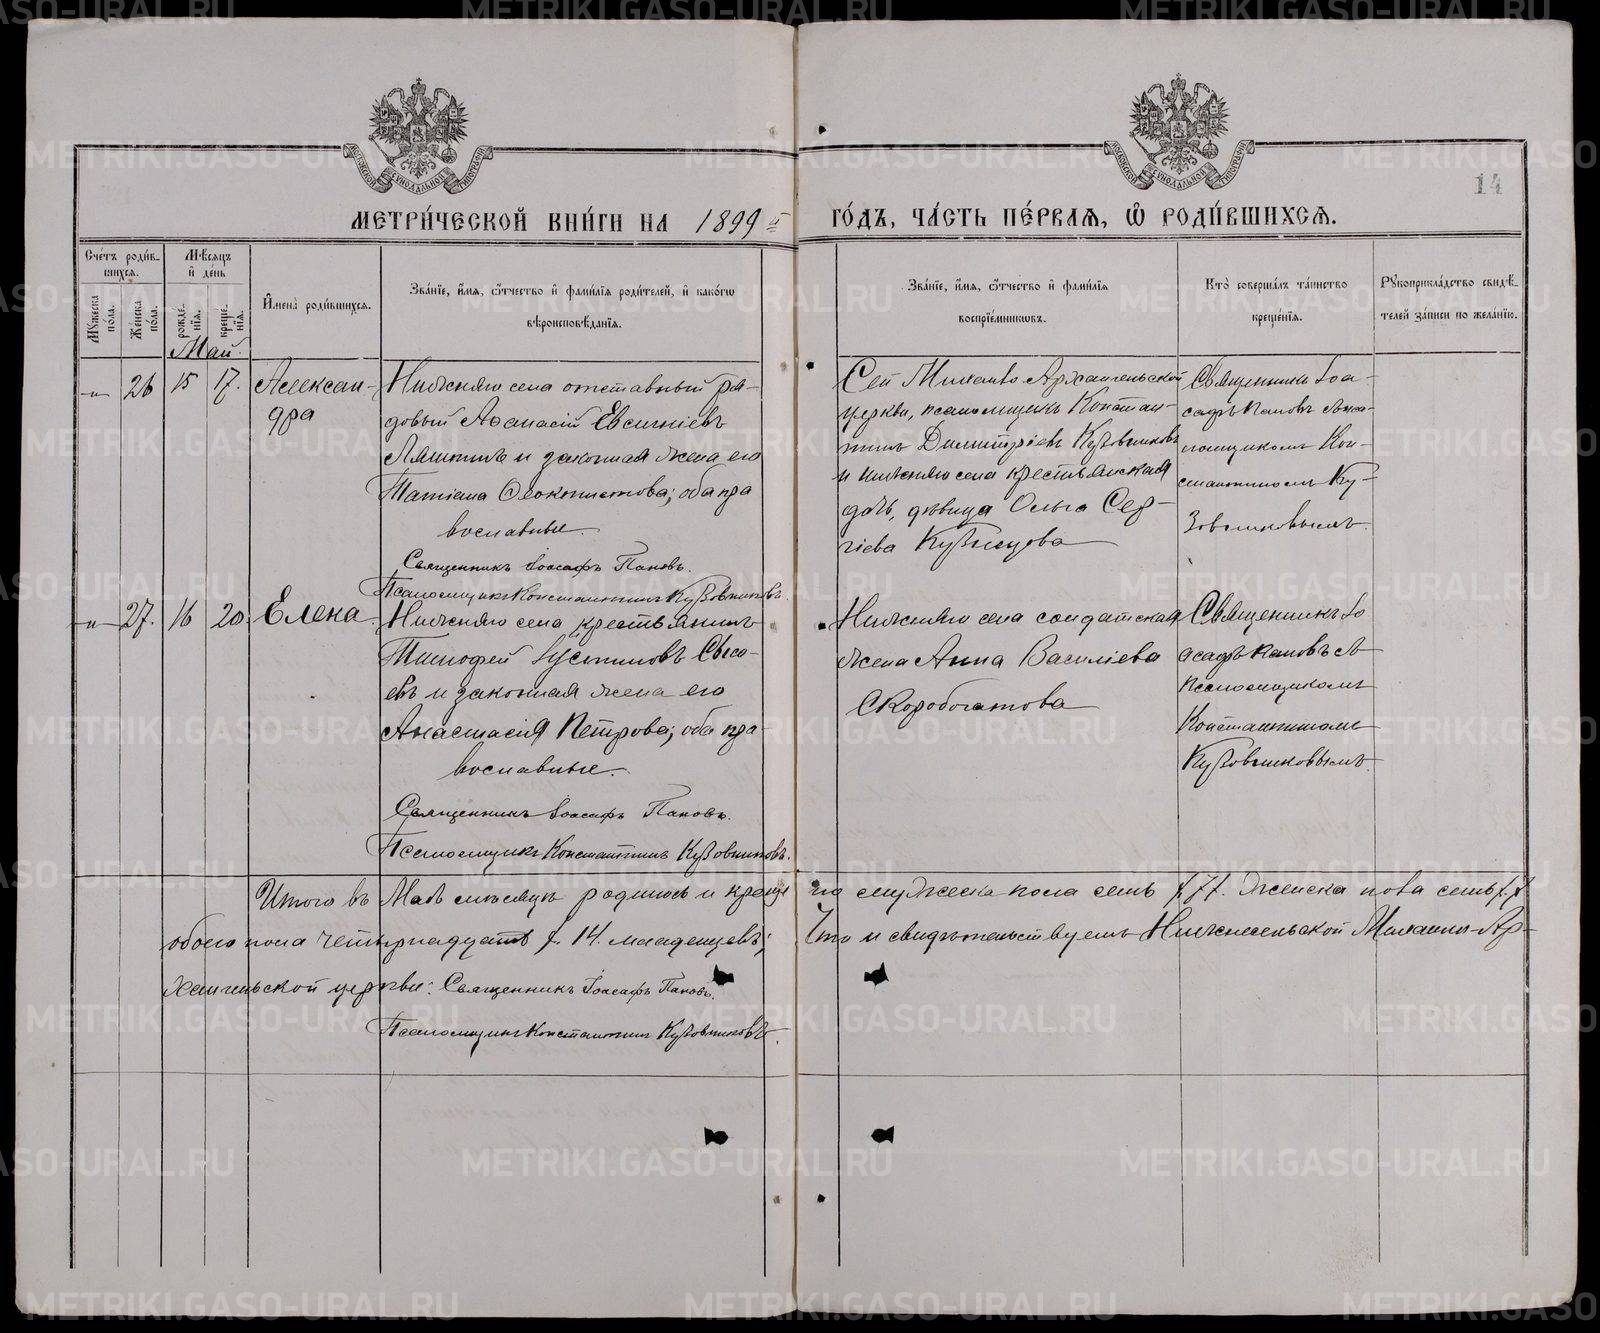 14
МЕТРИ́ЧЕСКОЙ КНИ́ГИ НА 1899 й
ГО́ДЪ, ЧА́СТЬ ПЕ́РВАЯ, Ѡ҆ РОДИ́ВШИХСЯ.
Сче́тъ роди́в-
шихся.
Мѣ́сяцъ
и҆ де́нь
Мꙋ́жеска по́ла.
Же́нска по́ла.
рожде́-
нїя.
креще́-
нїя.
И҆мена̀ роди́вшихся.
Зва́нїе, и҆́мя, ѻ҆́тчество и҆ фами́лїя роди́телей, и҆ како́гѡ
вѣроисповѣ́данїя.
Зва́нїе, и҆́мя, ѻ҆́тчество и҆ фами́лїя
воспрїе́мниковъ.
Кто̀ соверша́лъ та́инство
креще́нїя.
Рꙋкоприкла́дство свидѣ́-
телей за́писи по жела́нїю.
Май.
-„- 26 15 17. Александра
Нижняго села отставный ря-
довый Аѳанасій Евсигніевъ
и законная жена его
Татіана Ѳеоктистова; оба пра
вославные.
Священникъ Іоасафъ Пановъ.
Псаломщикъ Константинъ Кузовниковъ.
Сей Михаило Архангельской
церкви, псаломщикъ Констан-
тинъ Димитріевъ Кузовниковъ
и нижняго села крестьянская
дочь, дѣвица Ольга Сер-
гіева Кузнецова
Священникъ Іоа-
сафъ Пановъ съ пса-
ломщикомъ Кон-
стантиномъ Ку-
зовниковымъ.
-„- 27. 16 20. Елена.
Нижняго села крестьянинъ
Тимофей Іустиновъ
евъ и законная жена его
Анастасія Петрова; оба пра-
вославные.
Священникъ Іоасафъ Пановъ.
Псаломщикъ Константинъ Кузовниковъ.
Нижняго села солдатская
жена Анна Василіева
Скоробогатова
Священникъ Іо
асафъ Пановъ съ
псаломщикомъ
Константиномъ
Кузовниковымъ.
Итого въ Маѣ мѣсяцѣ родилось и креще
но мужеска пола семь /.7/. женска пола семь /.7
обоего пола четырнадцать /. 14. младенцевъ;
Что и свидѣтельствуемъ Нижнесельской Михаило-Ар-
хангельской церкви: Священникъ Іоасафъ Пановъ.
Псаломщикъ Константинъ Кузовниковъ.
METRIKI.GASO-URAL.RU